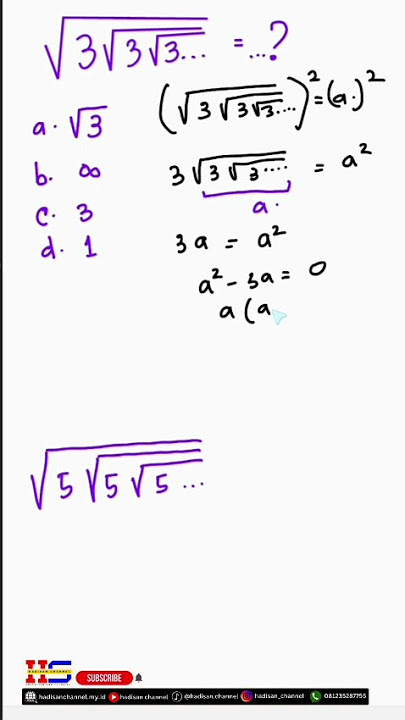 √3√3√3... = ...?
a. √3
b. ∞
c. 3
d. 1
(√3√3√3....)² = (a.)²
3√3√3.... = a²
a.
3a = a²
a² - 3a = 0
a (a
√5√5√5...
HS
HADISAN CHANNEL
SUBSCRIBE
hadisanchannel.my.id hadisan channel @hadisan.channel hadisan_channel 081235287755